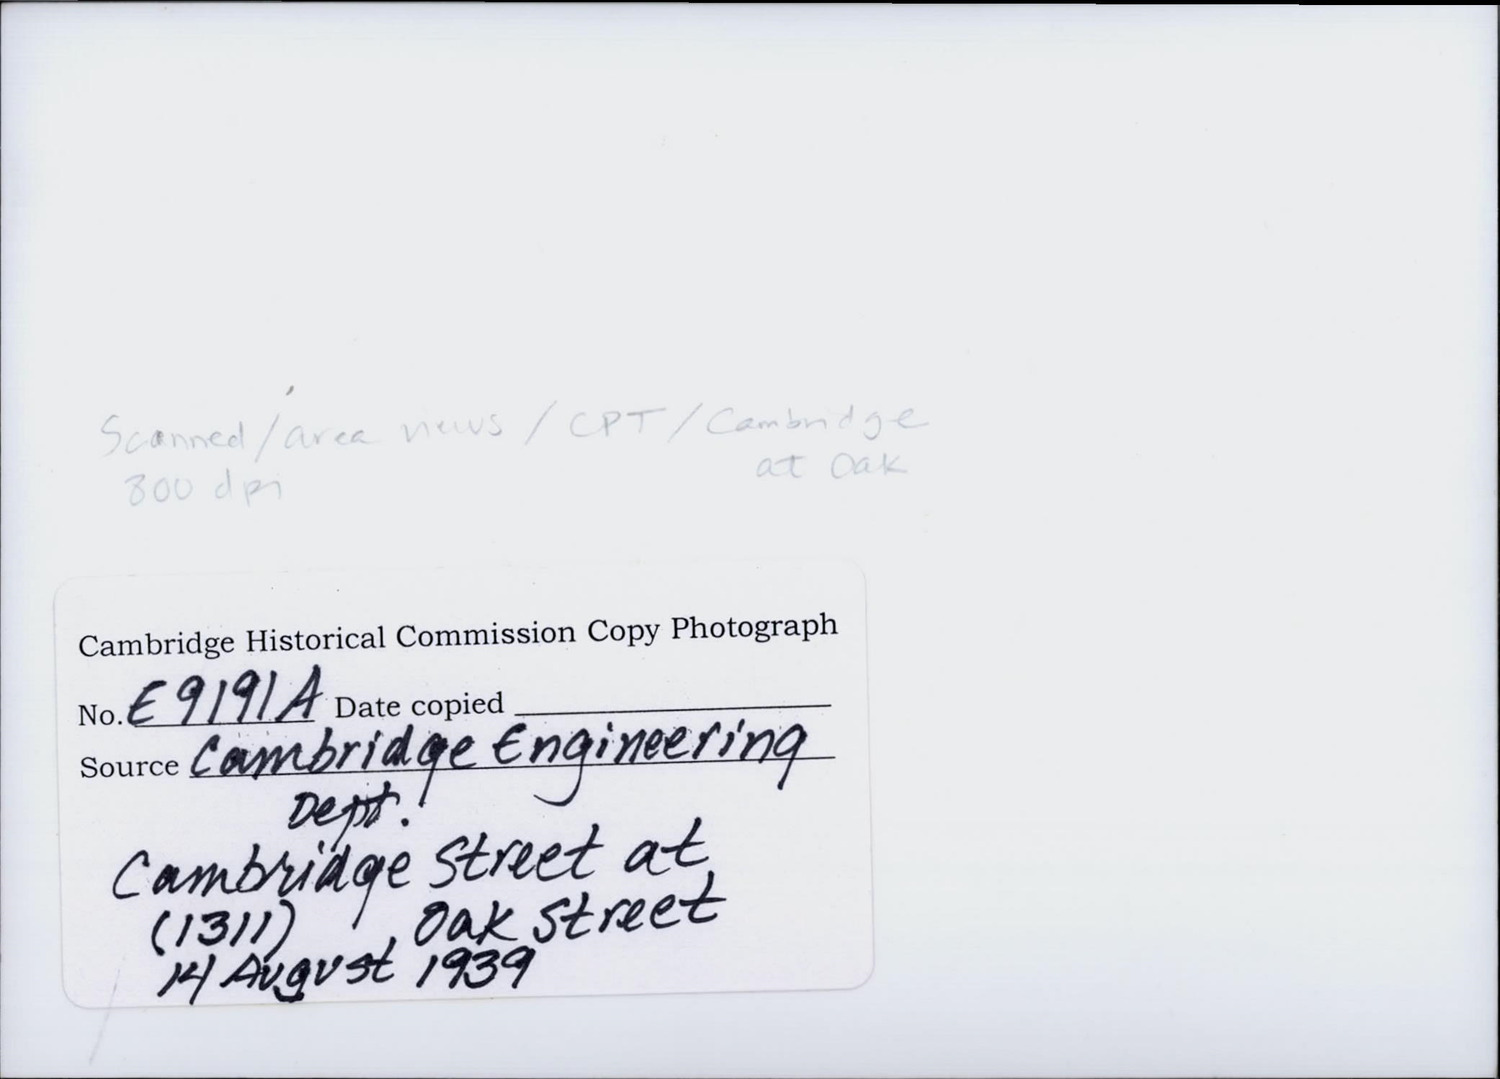 Scanned/area news/CPT/Cambridge
at Oak
300 dpi
Cambridge Historical Commission Copy Photograph
No. E9191A Date copied
Source Cambridge Engineering
Dept.
Cambridge Street at
(1311) Oak Street
14 August 1939